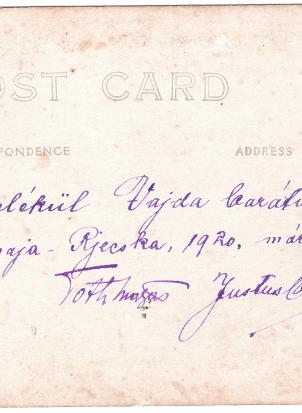 OST CARD
PONDENCE ADDRESS
lékül Vajda barátu
aja - Rjecska, 1920, már
Tóth Justus